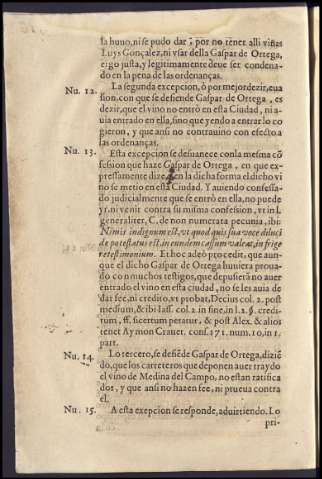 sa huuo, ni se pudo dar; por no tener alli viñas
Luys Gonçalez, ni vsar della Gaspar de Ortega,
ergo justa, y legitimamente deue ser condena-
do en la pena de las ordenanças.
Nu. 12. La segunda excepcion, ò por mejor dezir, eua
sion, con que se defiende Gaspar de Ortega, es
dezir, que el vino no entrò en esta Ciudad, ni a-
uia entrado en ella, sino que yendo a entrarlo co
gieron, y que ansi no contrauino con efecto a
las ordenanças.
Nu. 13. Esta excepcion se desuanece con la mesma cõ
fession que haze Gaspar de Ortega, en que ex-
pressamente dize, en la dicha forma el dicho vi
no se metio en esta Ciudad. Y auiendo confessa-
do judicialmente que se entrò en ella, no puede
yr, ni venir contra su misma confession, vt in l.
generaliter, C. de non numerata pecunia, ibi:
Nimis indignum est, vt quod quis sua voce dilucid
de potestatus est, in eundem cassum valeat, infrige
re testimonium. Et hoc adeò procedit, que aun-
que el dicho Gaspar de Ortega huuiera proua-
do con muchos testigos, que depusierã no auer
entrado el vino en esta ciudad, no se les auia de
dar fee, ni credito, vt probat, Decius col. 2. post
medium, & ibi Iass. col. 2. in fine, in l. 2. §. credi-
tum, ff. si certum petatur, & post Alex. & alios
tenet Aymon Crauet. cons. 171. num. 10, in 1.
part.
Nu. 14. Lo tercero, se defiẽde Gaspar de Ortega, diziẽ
do, que los carreteros que deponen auer tray do
el vino de Medina del Campo, no estan ratifica
dos, y que ansi no hazen fee, ni prueua contra
el.
Nu. 15. A esta excepcion se responde, aduirtiendo. Lo
pri-